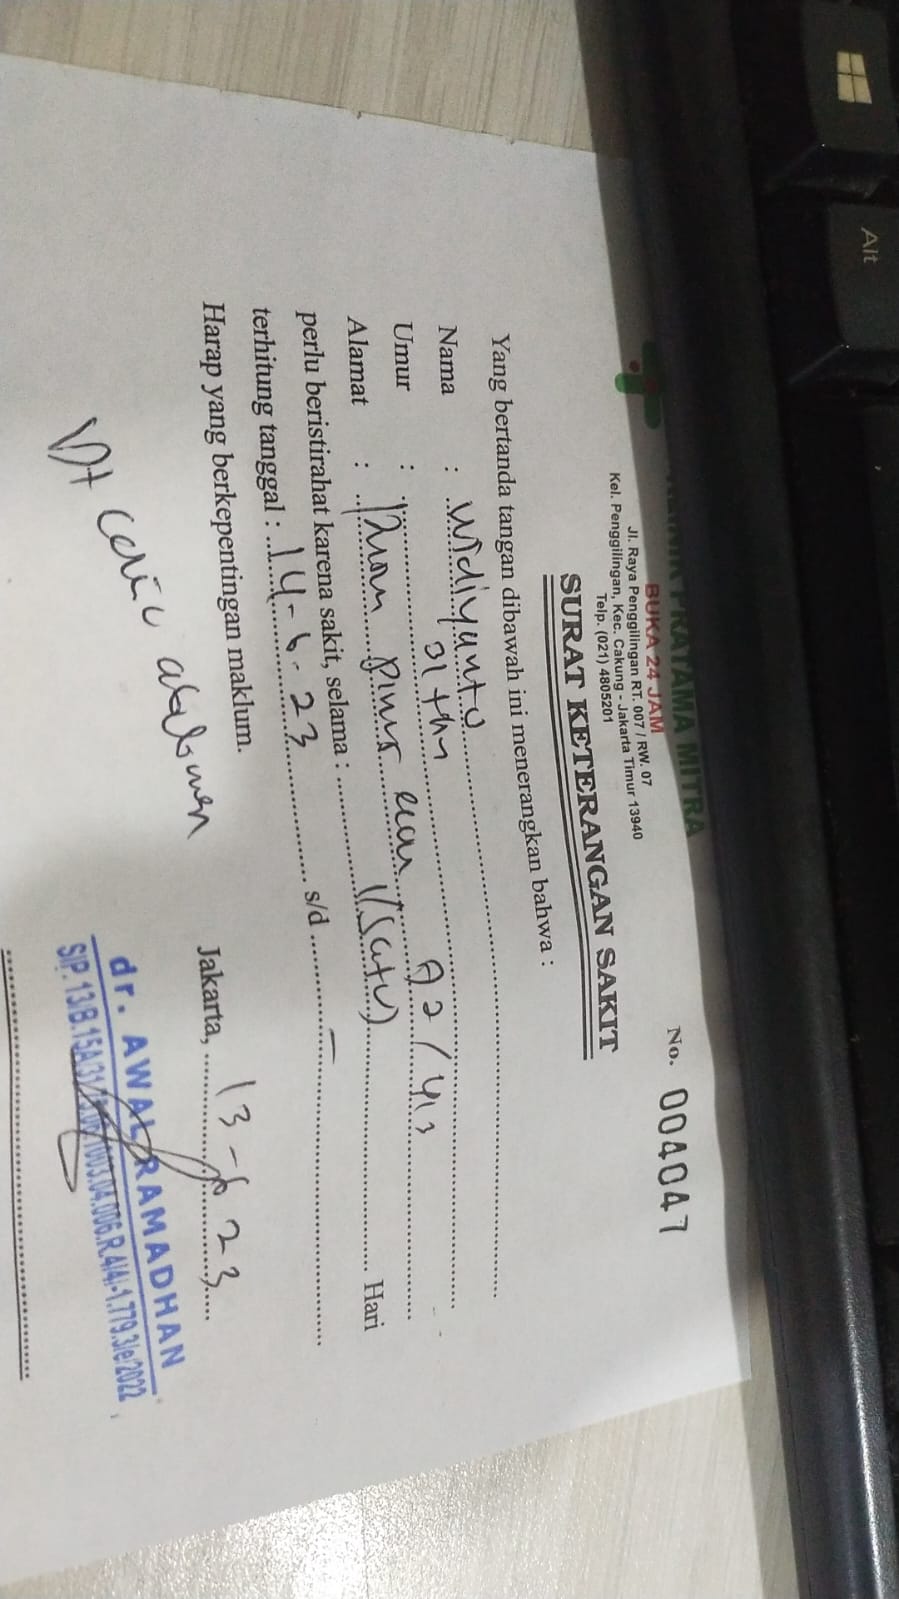 PRATAMA MITRA
BUKA 24 JAM
Jl. Raya Penggilingan RT. 007 / RW. 07
Kel. Penggilingan, Kec. Cakung - Jakarta Timur 13940
Telp. (021) 4805201
No. 004047
SURAT KETERANGAN SAKIT
Yang bertanda tangan dibawah ini menerangkan bahwa :
Nama : Widiyanto
Umur : 31 thn
Alamat : pinus A2/413
perlu beristirahat karena sakit, selama : 1 (Satu) Hari
terhitung tanggal : 14-6-23 s/d -
Harap yang berkepentingan maklum.
Jakarta, 13-6 23
dr. AWAL RAMADHAN
Alt